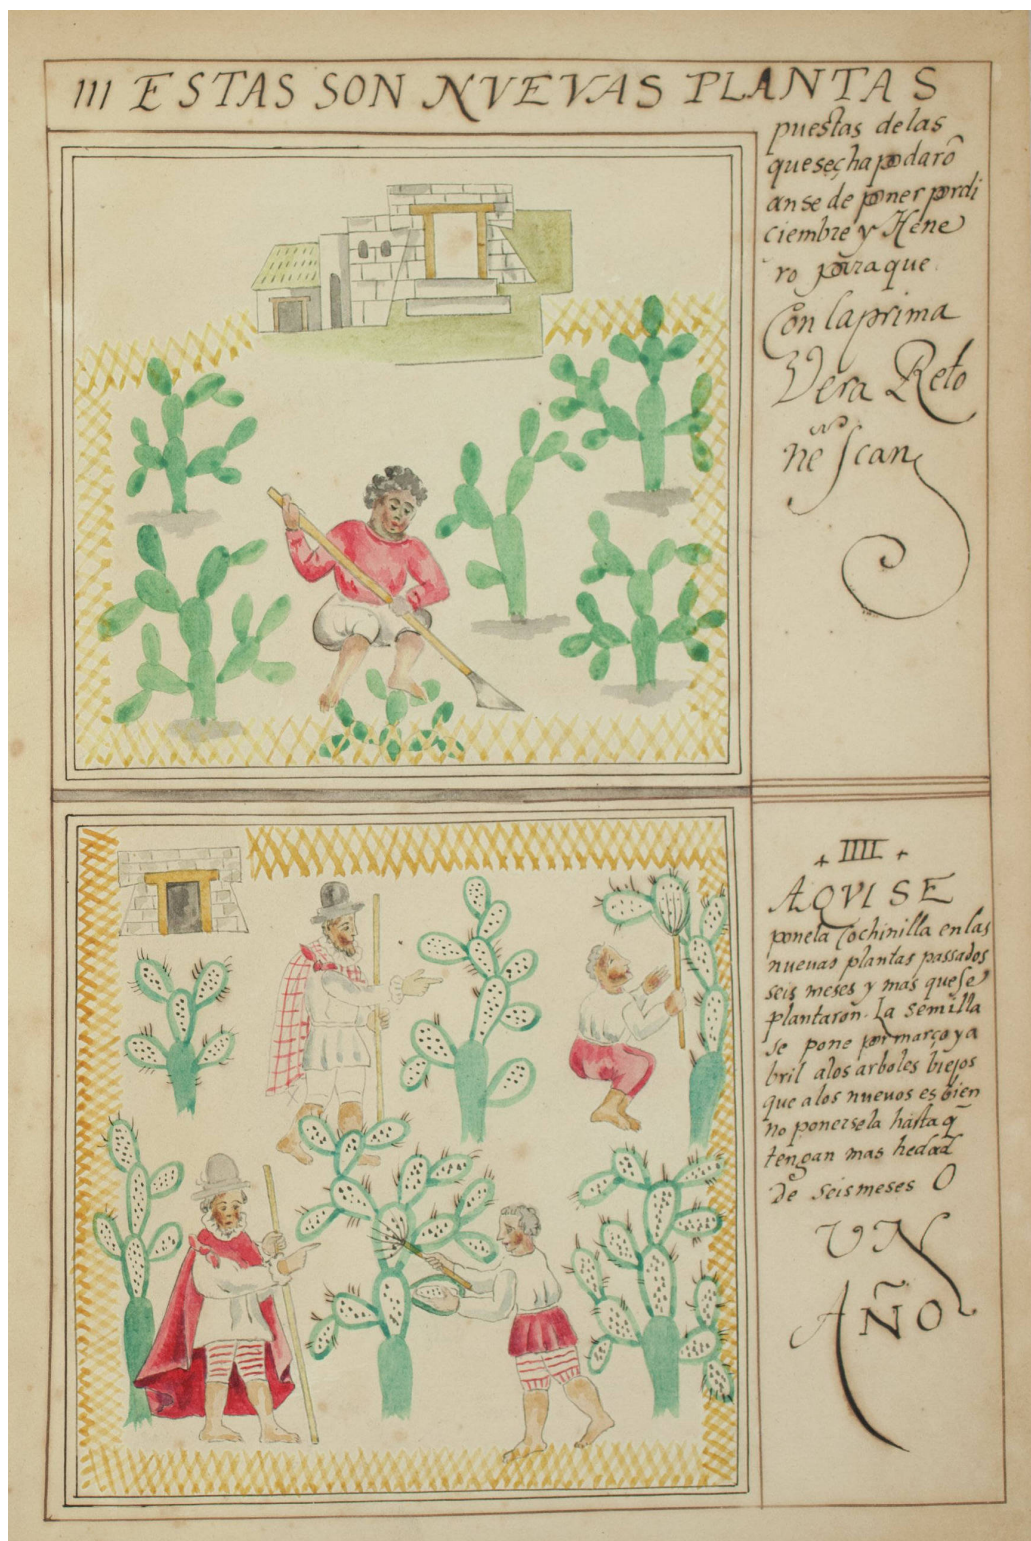 III ESTAS SON NVEVAS PLANTAS
puestas delas
quesechapodarõ
anse de poner pordi
ciembre y Hene
ro paraque
Con laprima
Vera Reto
ñe scan
+ IIII +
AQVI SE
ponela Cochinilla en las
nuevas plantas passados
seis meses y mas quese
plantaron. La semilla
se pone por março ya
bril alos arboles biejos
que alos nuevos es bien
no ponersela hasta q̃
tengan mas hedad
de seis meses O
VN
AÑO